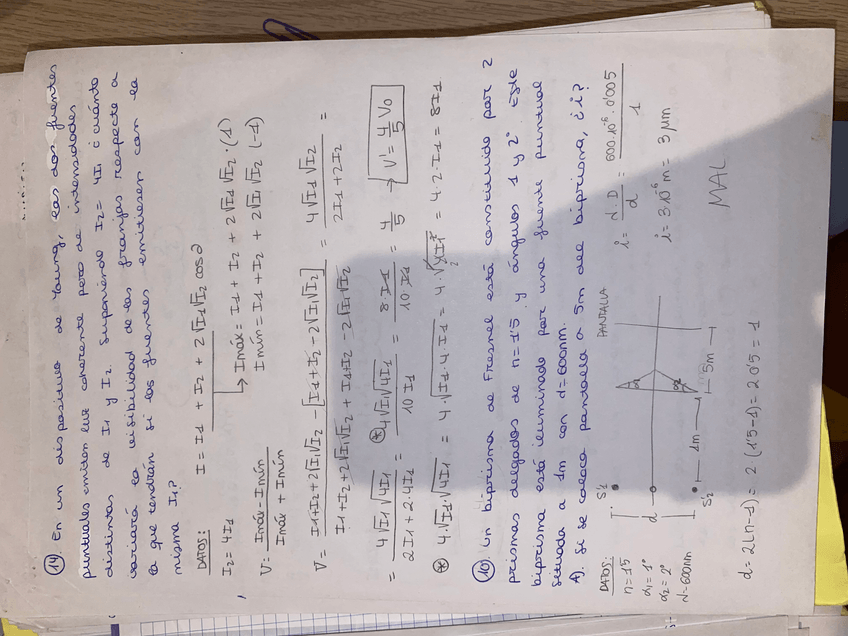 (14). En un dispositivo de Young, las dos fuentes
puntuales emiten luz coherente pero de intensidades
distintas de I1 y I2. Suponiendo I2 = 4I1 ¿cuánto
variará la visibilidad de las franjas respecto a
la que tendrán si las fuentes emitiesen con la
misma I1?
DATOS:
I2 = 4I1
I = I1 + I2 + 2√I1√I2 cos∂
Imáx = I1 + I2 + 2√I1√I2 · (1)
Imín = I1 + I2 + 2√I1√I2 (-1)
V = (Imáx - Imín) / (Imáx + Imín)
V = (I1+I2+2√I1√I2 - [I1+I2-2√I1√I2]) / (I1+I2+2√I1√I2 + I1+I2-2√I1√I2) = (4√I1√I2) / (2I1+2I2) =
= (4√I1√4I1) / (2I1+2·4I1) = ⊛ (4√I1√4I1) / (10I1) = (8·I1) / (10·I1) = 4/5 → V' = 4/5 V0
⊛ 4·√I1·√4I1 = 4√I1·4·I1 = 4·√4I1² = 4·2·I1 = 8I1
(10). Un biprisma de Fresnel está constituido por 2
prismas delgados de n=1'5 y ángulos 1 y 2°. Este
biprisma está iluminado por una fuente puntual
situada a 1m con d=600nm.
A). Si se coloca pantalla a 5m del biprisma, ¿i?
DATOS:
n = 1'5
α1 = 1°
α2 = 2°
λ = 600nm
S'1
S'2
d
α
α2
PANTALLA
1m
5m
i = (λ·D) / d = (600·10⁻⁶·0'005) / 1
i = 3·10⁻⁶ m = 3 μm
MAL
d = 2(n-1) = 2 (1'5-1) = 2·0'5 = 1